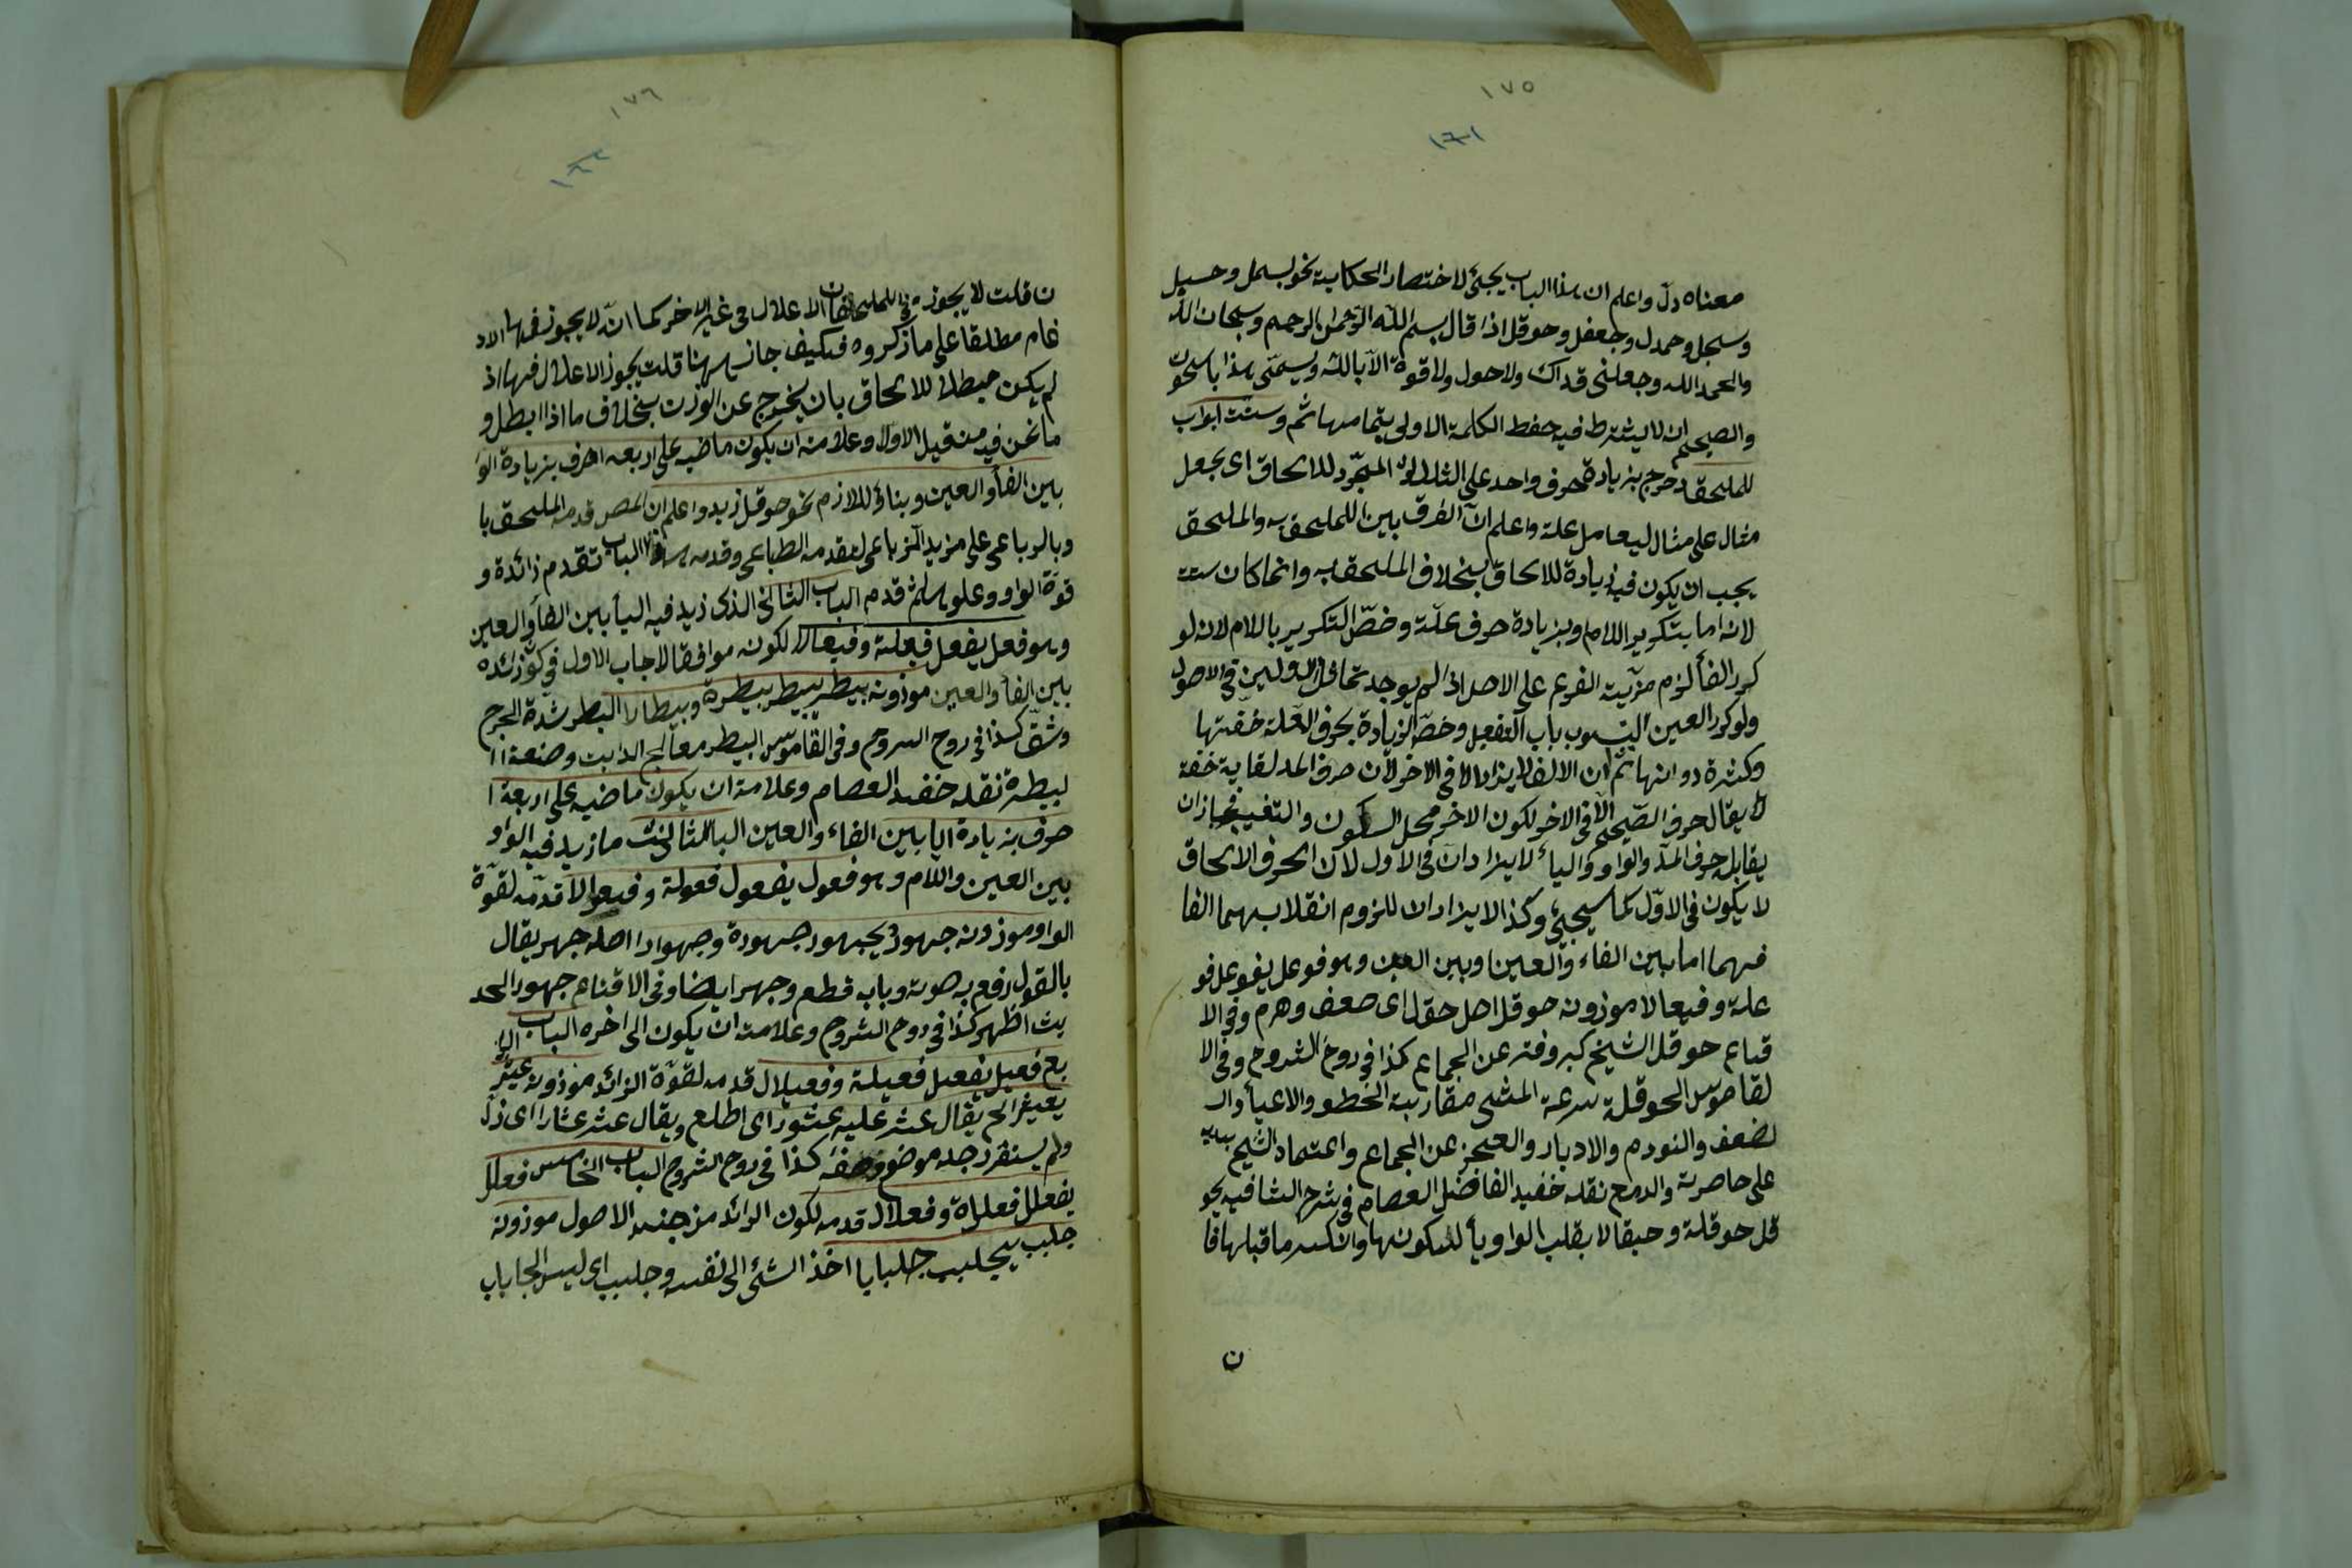 ١٧٥
١٦١
معناه دلّ واعلم ان هذا الباب يجئ لاختصار الحكاية نحو بسمل وحسبل
وسبحل وحمدل وجعفل وحوقل اذا قال بسم اللّه الرّحمن الرحيم وسبحان اللّه
والحمد اللّه وجعلنى فداك ولا حول ولا قوة الّا باللّه ويسمّى هذا با
والصحيح ان لا يشترط فيه حفظ الكلمة الاولى بتمامها ثم وستت ابواب
للملحق دحرج بزيادة حرف واحد على الثلاثى المجّرد للالحاق اى يجعل
مثال على مثال ليعامل علة واعلم انّ الفرق بين الملحق به والملحق
يجب ان يكون فيه زيادة للالحاق بخلاف الملحق به وانما كان ستت
لانه اما بتكرير اللام وبزيادة حرف علّة وخصّ التكرير باللام لانه لو
كرر الفأ لزم مزّية الفرع على الاصل اذ لم يوجد تماثل الاولين فى الاصول
ولو كرر العين باب التفعيل وخصّ الزيادة بحرف العلة خفّتها
وكثرة دورانها ثم ان الالف لا يزاد الا فى الاخر لان حرف المد لغاية خفة
لا يقال حرف الصّحيح الّا فى الاخر لكون الاخر محل السكون والتغيير فجاز ان
يقابل حرف المدّ والواو والياء لا يزادان فى الاول لان الحرف الالحاق
لا يكون فى الاوّل كما سيجئ وكذا لا يزادان للزوم انقلابهما الفا
فهما اما بين الفاء والعين او بين العين وهو فوعل يفوعل فو
علة وفيعالا موزونه حوقل اصل حقل اى ضعف وهرم وفى الا
قناع حوقل الشيخ كبر وفتر عن الجماع كذا فى روح الشروح وفى الا
لقاموس الحوقلة سرعة المشى مقاربة الخطو والاعيأ وال
لضعف والنودم والادبار والعجز عن الجماع واعتماد الشيخ بيديه
على خاصرته والدمع نقله حفيد الفاضل العصام فى شرح الشافيه يحو
قل حوقلة وحيقالا بقلب الواو يأ لسكونها وانكسر ما قبلها فا
ن
١٧٦
١٦٢
ن قلت لا يجوز فى الملحقات الاعلال فى غير الاخر كما انّه لا يجوز فيها الاد
غام مطلقا على ما ذكروه فكيف جاز ههنا قلت يجوز الاعلال فيها اذ
لم يكن مبطلا للالحاق بان يخرج عن الوزن بخلاف ما اذا ابطل و
ما نحن فيه من قبيل الاول وعلامته ان يكون ماضيه على اربعه احرف بزيادة الوا
بين الفأ والعين وبنائه للازم نحو حوقل زيد واعلم ان المص قدمه الملحق با
وبالرباعى على مزيد الرباعى لتقدمه الطباعى وقدمه هذا الباب تقدم زائدة و
قوة الواو وعلوه ثم قدم الباب الثانى الذى زيد فيه اليأ بين الفأ والعين
وهو فعل يفعل فيعلة وفيعالا لكونه موافقا لاجاب الاول فى كون زائده
بين الفأ والعين موزونه بيطر يبيطر بيطرة وبيطارا البطر شدة الجرح
وشق كذا فى روح الشروح وفى القاموس البيطر معالج الدابت وصنعة ا
لبيطرة نقله حفيد العصام وعلامته ان يكون ماضيه على اربعة ا
حرف بزيادة اليا بين الفاء والعين البا الثالث ما زيد فيه الواو
بين العين واللام وهو فعول يفعول فعولة وفعوالا قدمه لقوة
الواو موزونه جهور يجهور جهورة وجهوارا اصله جهر يقال
بالقول رفع به صوته وباب قطع وجهر ايضا وفى الاقناع جهور الحد
يث اظهر كذا فى روح الشروح وعلامته ان يكون الى اخره الباب الرا
بع فعيل يفعيل فعيلة وفعيلال قدمه لقوة الزائد موزونه عثير
يعيثر الخ يقال عثر عليه عثورا اى اطلع ويقال عثر عثارا اى زل
ولم يستقر رجله موضع وضعه كذا فى روح الشروح الباب الخامس فعلل
يفعلل فعللة وفعلال قدمه لكون الزائد من جنس الاصول موزونه
جلبب يجلبب جلبابا اخذ الشئ الى نفسه وجلبب اى لبس الجلباب